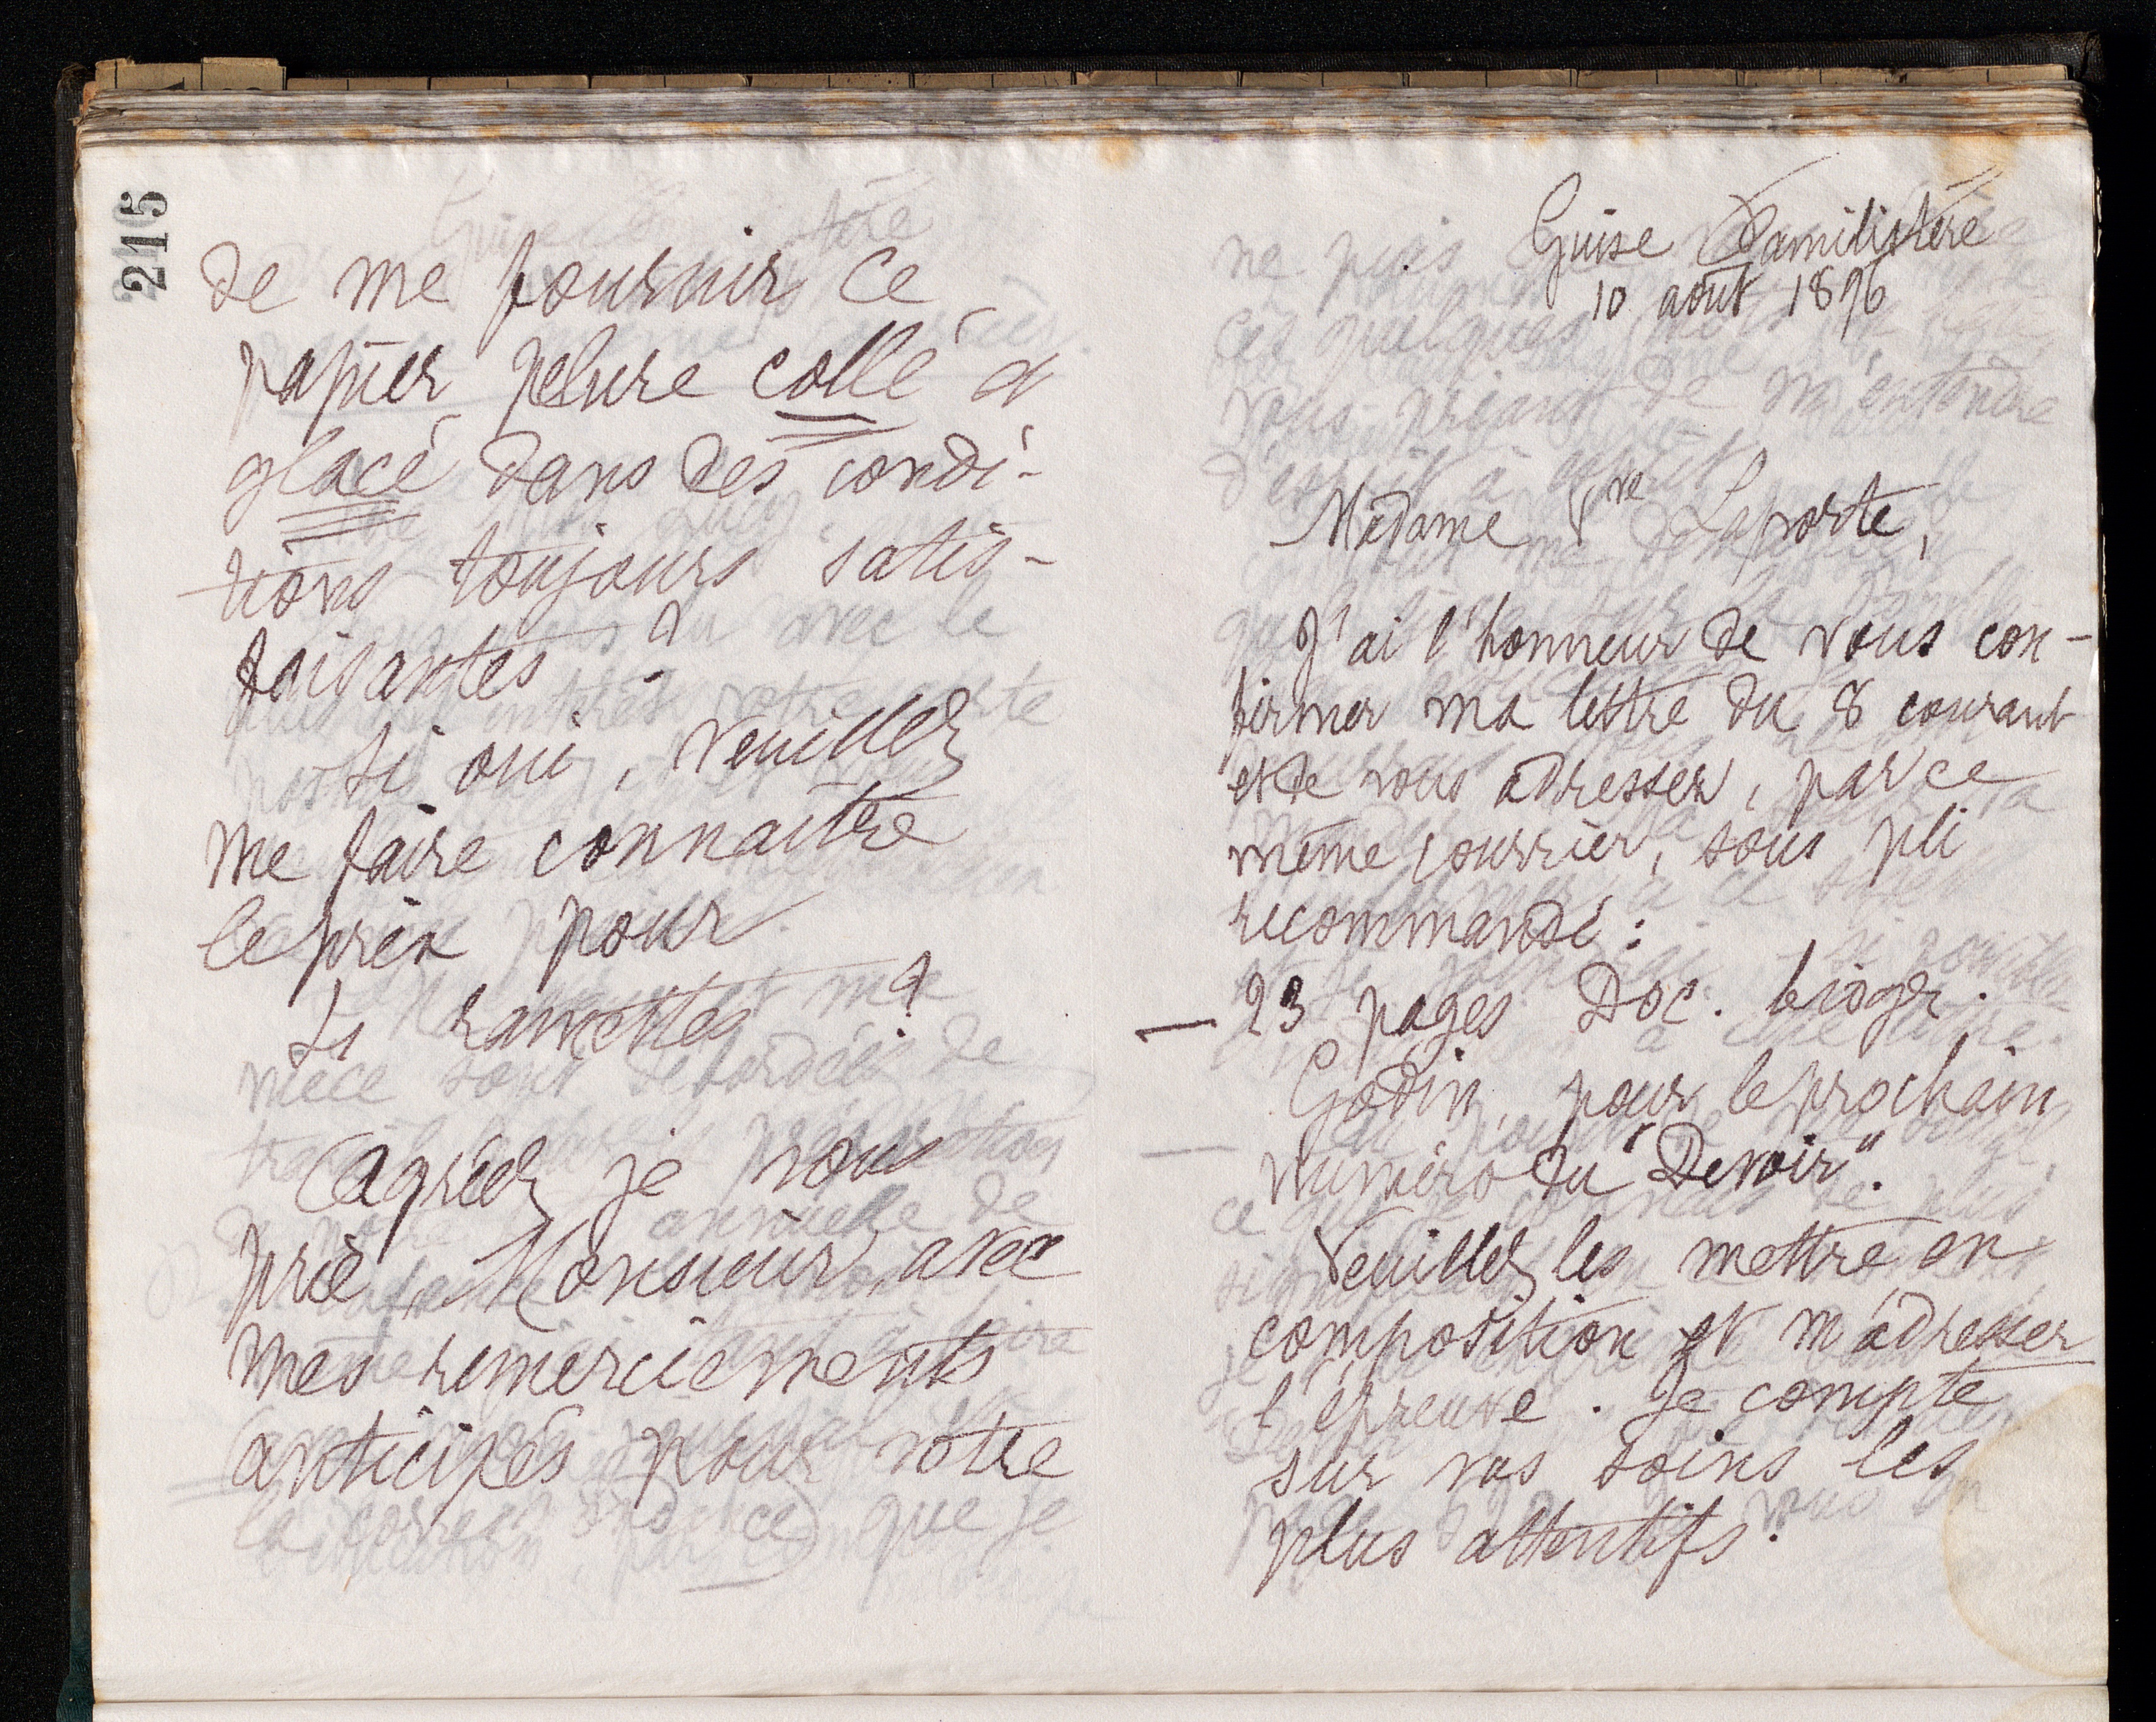 215
de me fournir ce
papier pelure collé et
glacé dans des condi-
tions toujours satis-
faisantes ?
Si oui, veuillez
me faire connaître
le prix pour
ramettes ?
Agréez, je vous
prie, Monsieur, avec
mes remerciements
anticipés pour votre
Guise Familistère
10 août 1896
Madame Vve Laporte,
J'ai l'honneur de vous con-
firmer ma lettre du 8 courant
et de vous adresser, par ce
même courrier, sous pli
recommandé :
— 23 pages Doc. biogr.
Godin, pour le prochain
numéro du "Devoir".
Veuillez les mettre en
composition et m'adresser
l'épreuve. Je compte
sur vos soins les
plus attentifs.